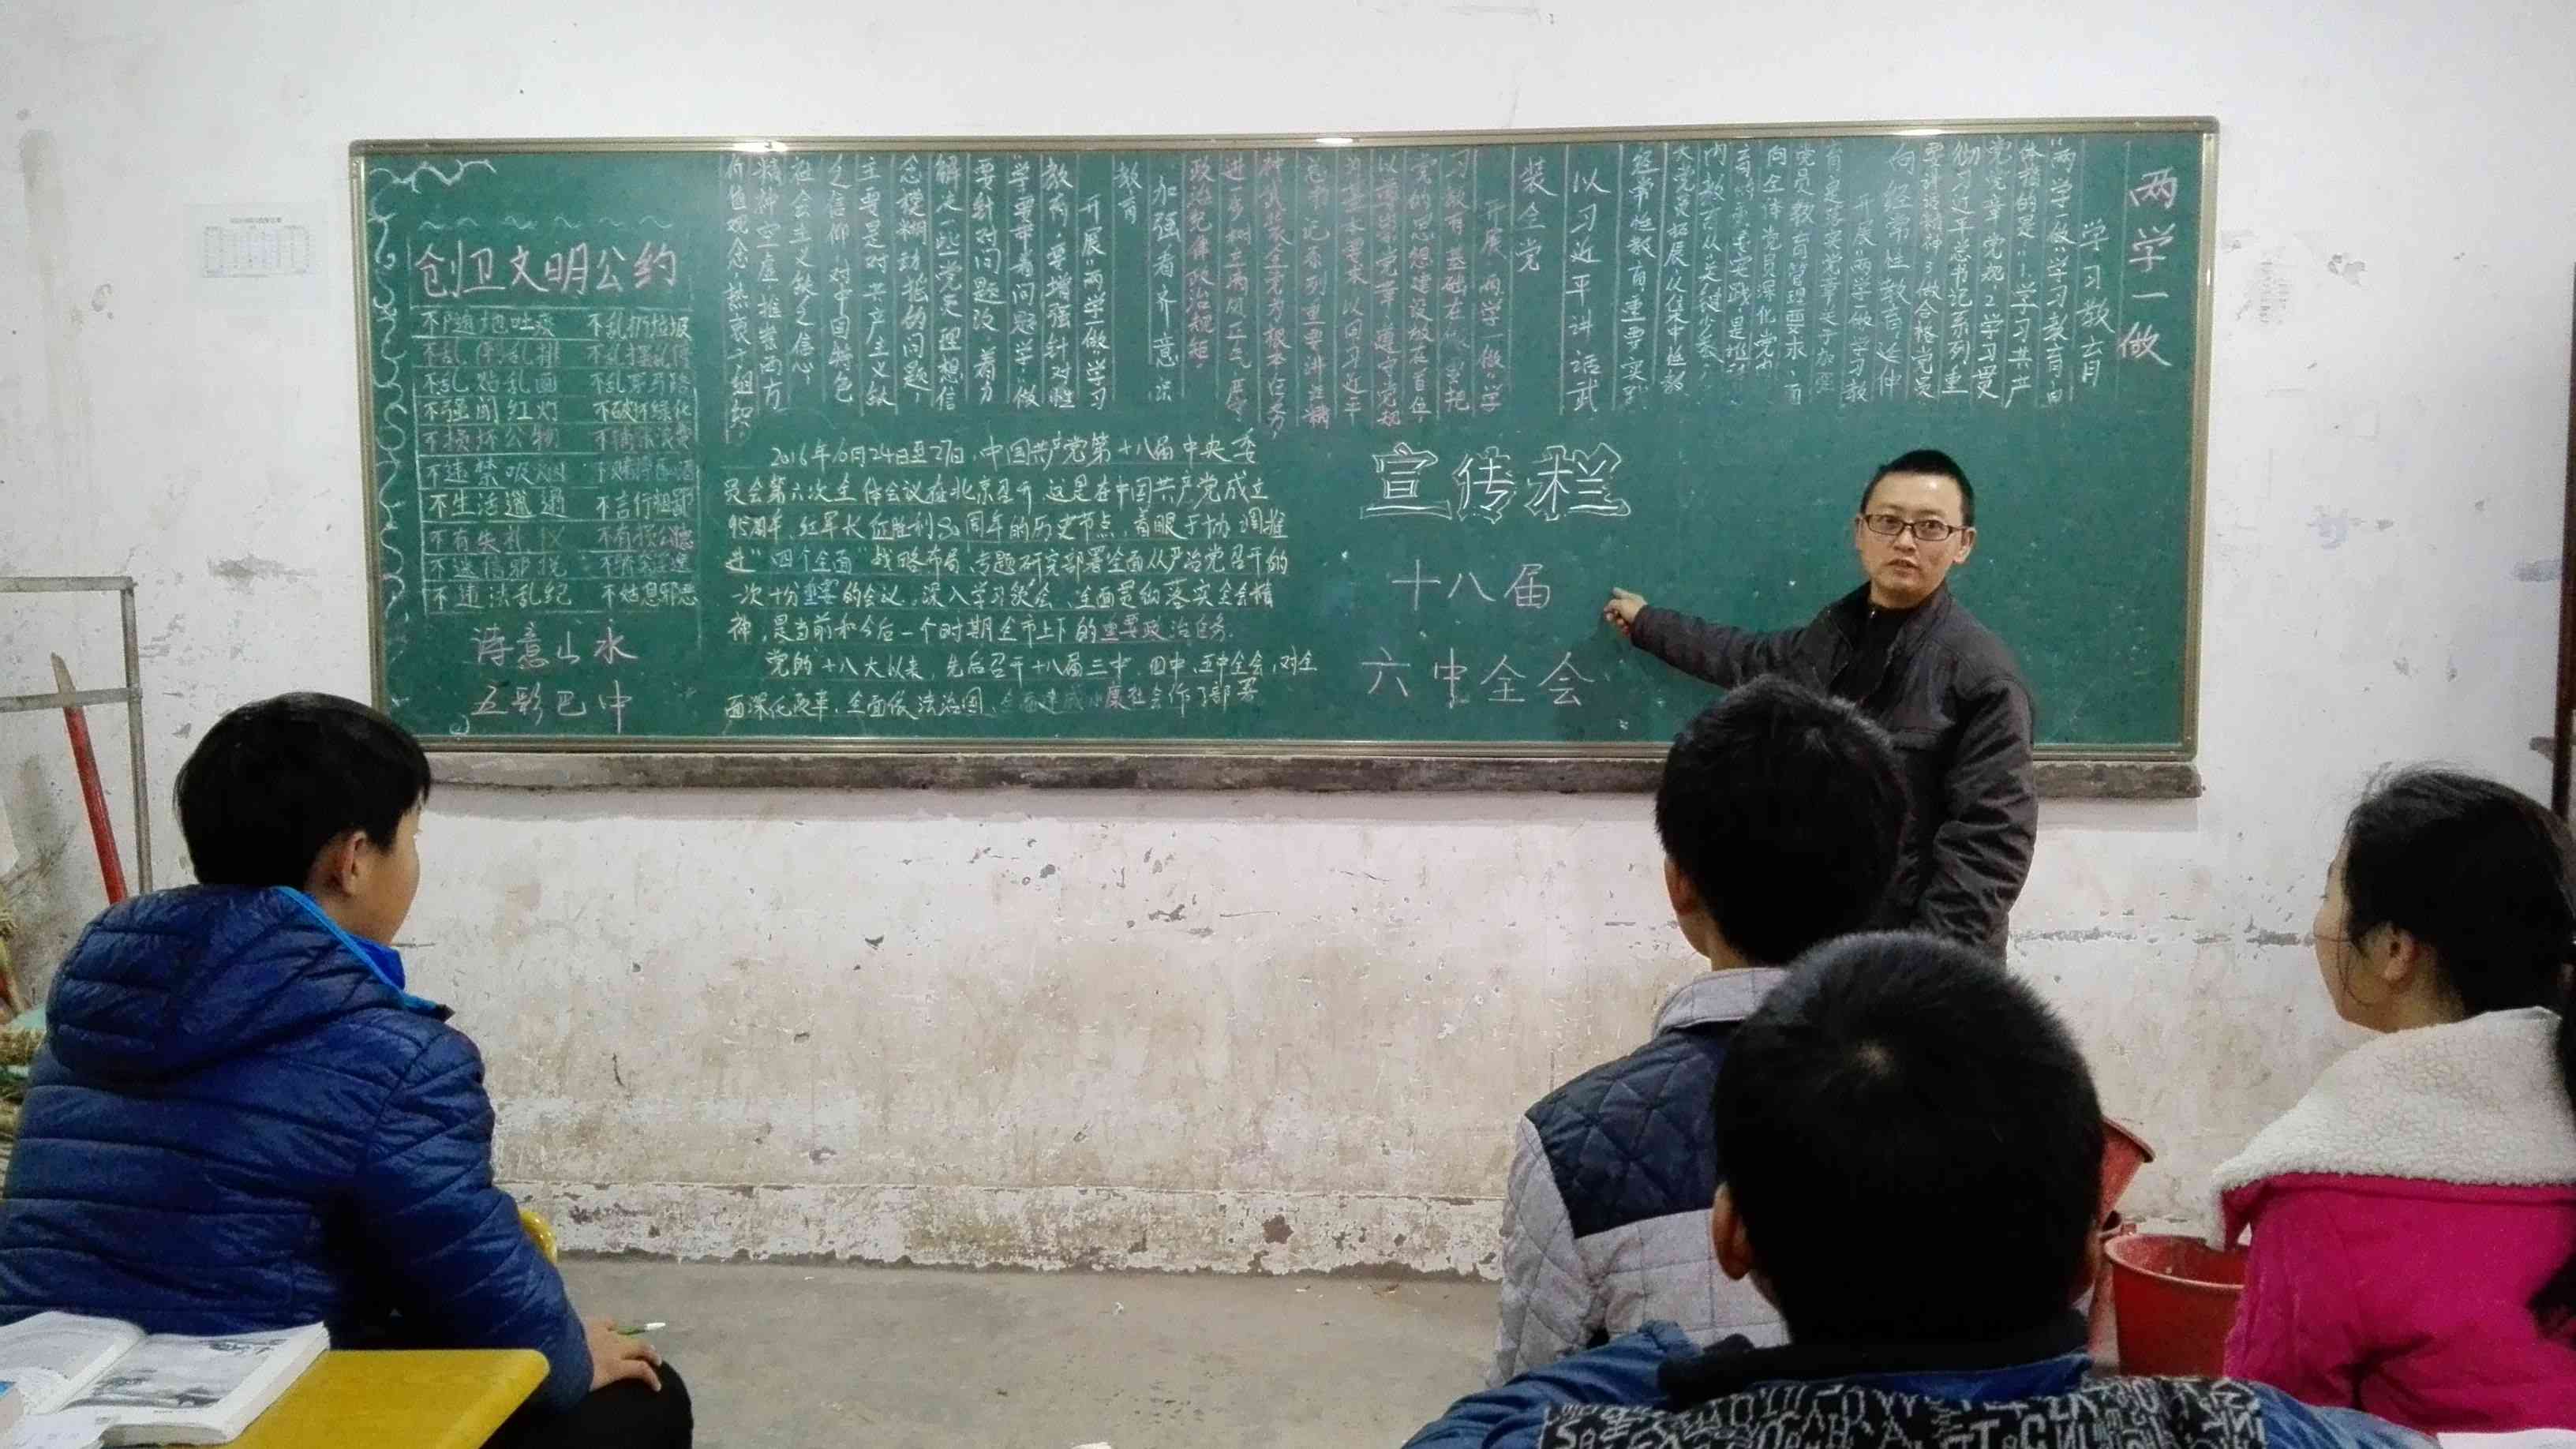 两学一做
学习教育
"两学一做"学习教育,自
体指的是"1.学习共产
党党章党规2.学习贯
彻习近平总书记系列重
要讲话精神3.做合格党员
向经常性教育延伸
开展"两学一做"学习教
育是落实党章关于加强
党员教育管理要求,面
向全体党员深化党内
大党员拓展,从集中性教
经常性教育重要实
以习近平讲话武
装全党
开展"两学一做"学
习教育,基础在做,要把
党的思想建设放在首位,
以尊崇党章,遵守党规
为基本要求,以用习近平
总书记系列重要讲话精
神武装全党为根本任务,
政治纪律政治规矩,
加强看齐意识
教育
开展"两学一做"学习
教育,要增强针对性
"学"要带着问题学,"做"
要针对问题改,着力
解决一些党员理想信
念模糊动摇的问题,
主要是对共产主义缺
乏信仰,对中国特色
社会主义缺乏信心,
精神空虚,推崇西方
价值观念,热衷于组织,
创卫文明公约
不随地吐痰 不乱扔垃圾
不乱停乱摆
不乱贴乱画
不强闯红灯 不破坏绿化
不损坏公物
不违禁吸烟
不生活邋遢 不言行粗鄙
不有失礼仪 不有损公德
不迷信邪说
不违法乱纪 不姑息邪恶
诗意山水
五彩巴中
2016年10月24日至27日,中国共产党第十八届中央委
员会第六次全体会议在北京召开,这是在中国共产党成立
95周年、红军长征胜利80周年的历史节点,着眼于协调推
进"四个全面"战略布局、专题研究部署全面从严治党召开的
一次十分重要的会议。深入学习领会、全面贯彻落实全会精
神,是当前和今后一个时期全市上下的重要政治任务.
党的十八大以来,先后召开十八届三中、四中、五中全会,对全
面深化改革、全面依法治国、全面建成小康社会作了部署
宣传栏
十八届
六中全会